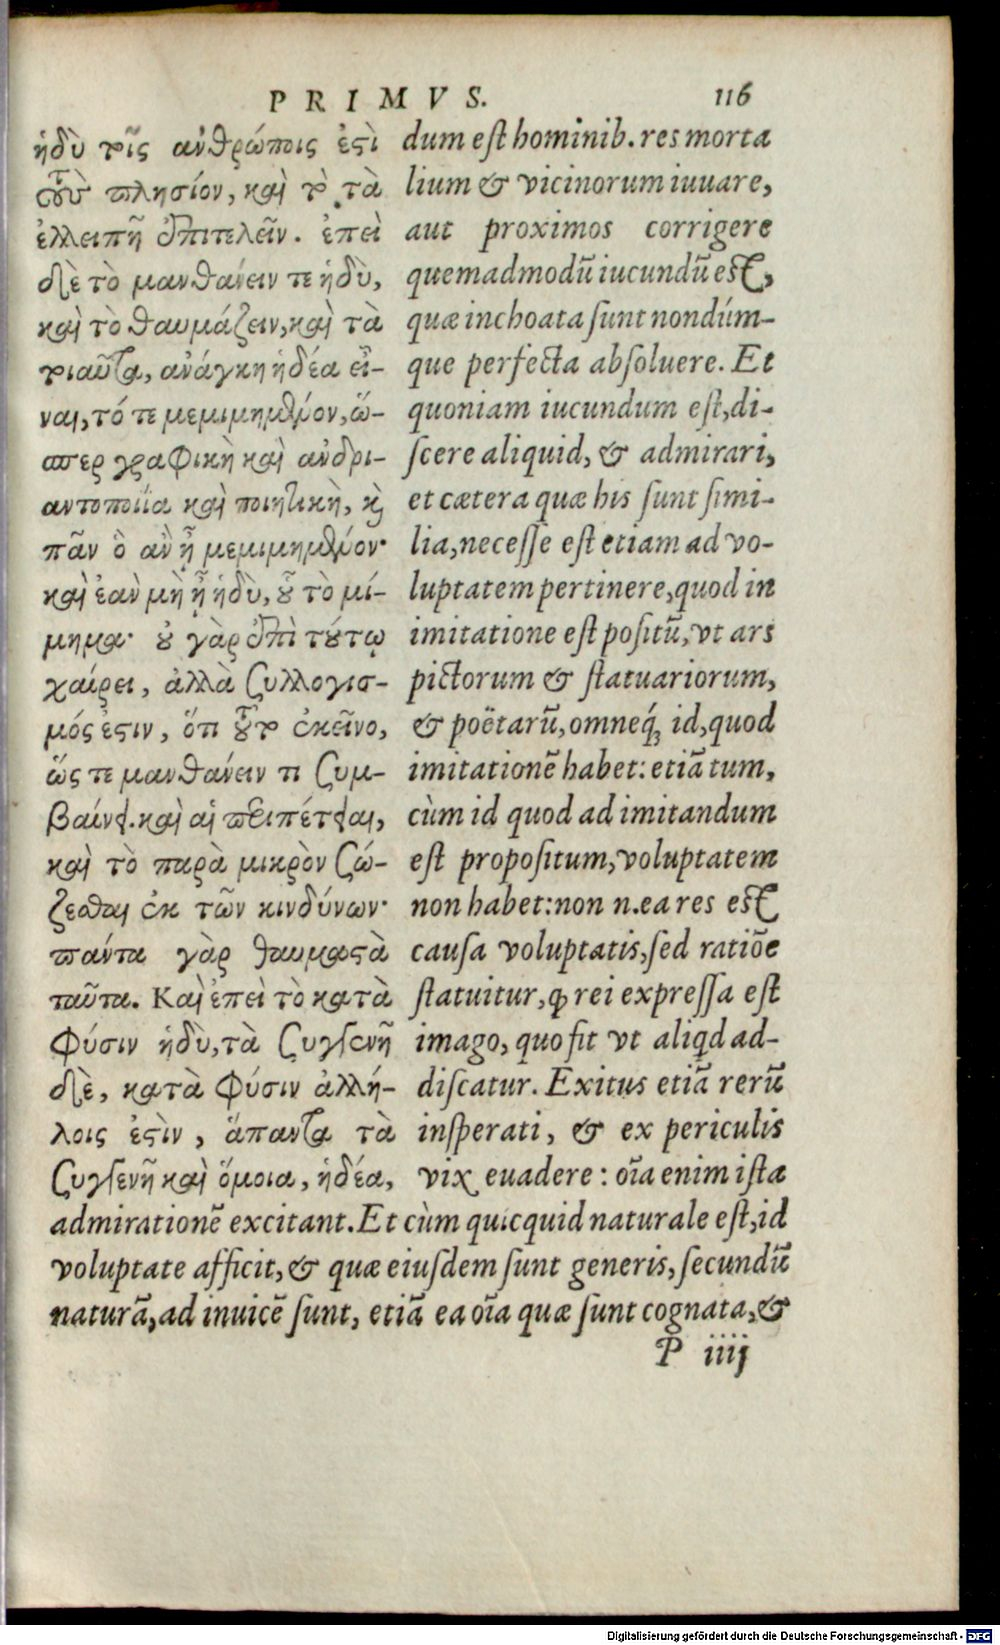 PRIMVS. 116
ἡδὺ τοῖς ἀνθρώποις ἐϛὶ
τοῦ πλησίον, καὶ τὸ τὰ
ἐλλειπῆ ἐπιτελεῖν. ἐπεὶ
δὲ τὸ μανθάνειν τε ἡδὺ,
καὶ τὸ θαυμάζειν, καὶ τὰ
τοιαῦτα, ἀνάγκη ἡδέα εἶ-
ναι, τό τε μεμιμημένον, ὥ-
σπερ γραφικὴ καὶ ἀνδρι-
αντοποιΐα καὶ ποιητικὴ, κὶ
πᾶν ὃ ἂν ᾖ μεμιμημένον·
καὶ ἐὰν μὴ ᾖ ἡδὺ, οὗ τὸ μί-
μημα· οὐ γὰρ ἐπὶ τούτῳ
χαίρει, ἀλλὰ συλλογισ-
μός ἐϛιν, ὅτι τοῦτο ἐκεῖνο,
ὥς τε μανθάνειν τι συμ-
βαίνει. καὶ αἱ περιπέτειαι,
καὶ τὸ παρὰ μικρὸν σώ-
ζεσθαι ἐκ τῶν κινδύνων·
πάντα γὰρ θαυμαϛὰ
ταῦτα. Καὶ ἐπεὶ τὸ κατὰ
φύσιν ἡδὺ, τὰ συγγενῆ
δὲ, κατὰ φύσιν ἀλλή-
λοις ἐϛὶν, ἅπαντα τὰ
συγγενῆ καὶ ὅμοια, ἡδέα,
dum est hominib. res morta
lium & vicinorum iuuare,
aut proximos corrigere
quemadmodũ iucundũ est,
quæ inchoata sunt nondúm-
que perfecta absoluere. Et
quoniam iucundum est, di-
scere aliquid, & admirari,
et cætera quæ his sunt simi-
lia, necesse est etiam ad vo-
luptatem pertinere, quod in
imitatione est positũ, vt ars
pictorum & statuariorum,
& poëtarũ, omneq́; id, quod
imitationẽ habet: etiã tum,
cùm id quod ad imitandum
est propositum, voluptatem
non habet: non n. ea res est
causa voluptatis, sed ratiõe
statuitur, ꝙ rei expressa est
imago, quo fit vt aliqd ad-
discatur. Exitus etiã rerũ
insperati, & ex periculis
vix euadere: oĩa enim ista
admirationẽ excitant. Et cùm quicquid naturale est, id
voluptate afficit, & quæ eiusdem sunt generis, secundũ
naturã, ad inuicẽ sunt, etiã ea oĩa quæ sunt cognata, &
P iiij
Digitalisierung gefördert durch die Deutsche Forschungsgemeinschaft - DFG